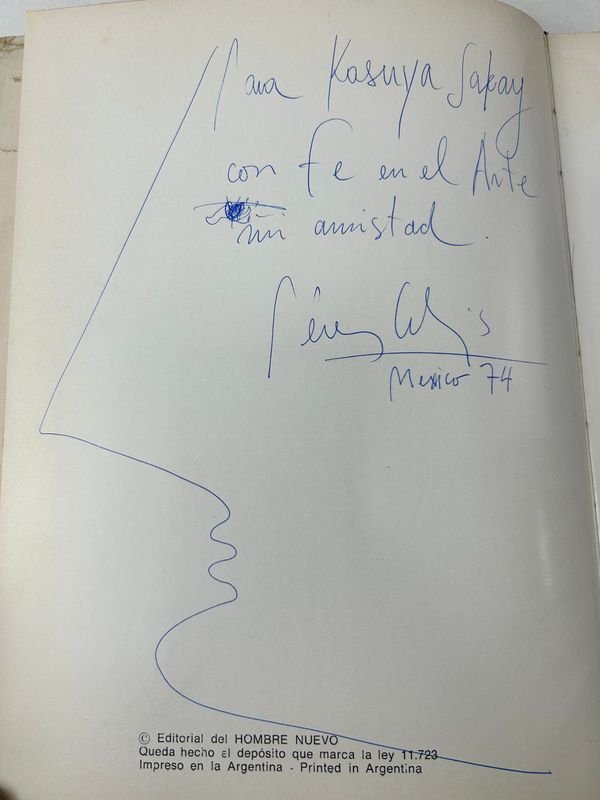 Para Kasuya Sakay
con fe en el Arte
mi amistad.
Pérez Celis
Mexico 74
© Editorial del HOMBRE NUEVO
Queda hecho el depósito que marca la ley 11.723
Impreso en la Argentina - Printed in Argentina